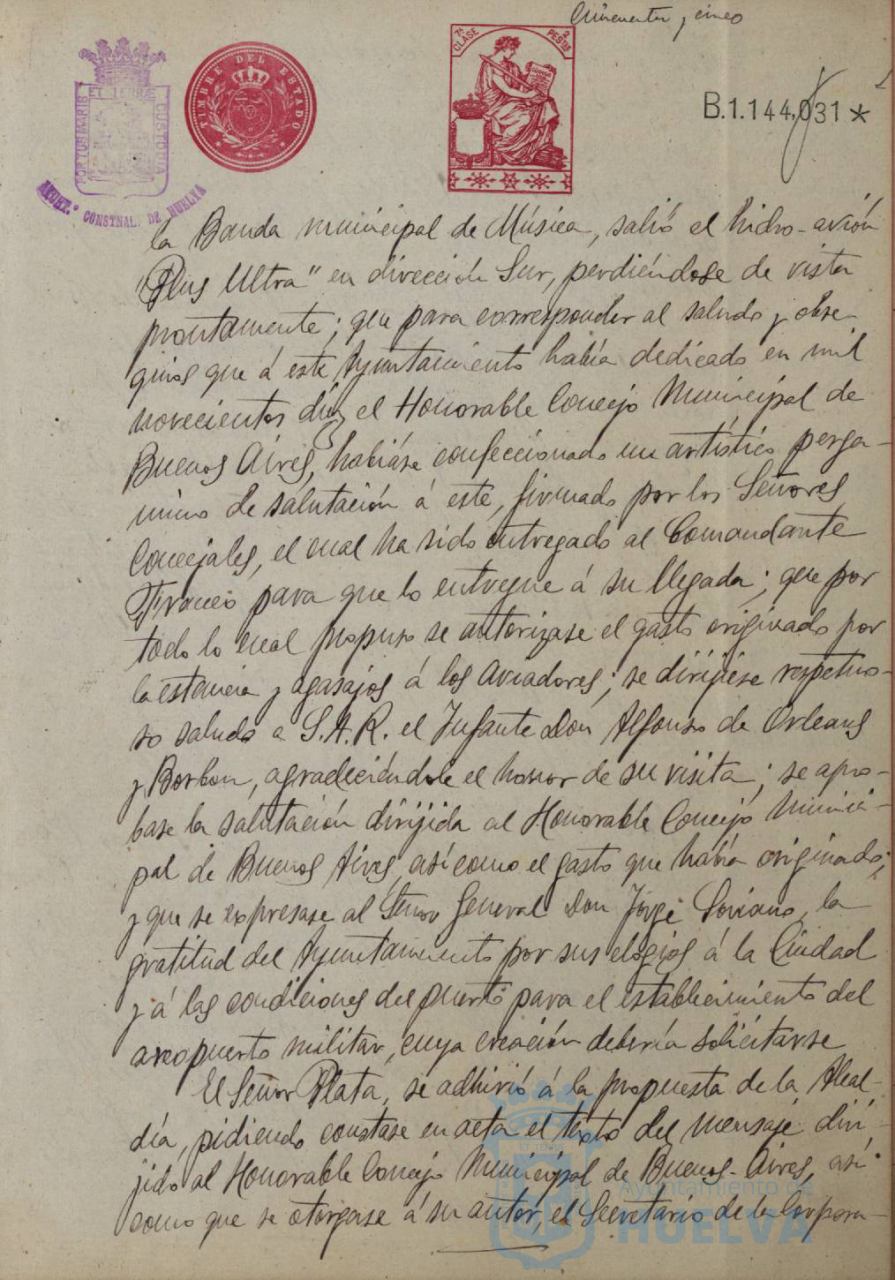 Cincuenta y cinco
PORTUS MARIS ET TERRÆ CUSTODIA
AYUNT.º CONSTNAL. DE HUELVA
TIMBRE DEL ESTADO
7ª CLASE 2 PESTAS
B.1.144,031 *
la Banda municipal de Música, salió el hidro-avión
"Plus Ultra" en dirección Sur, perdiéndose de vista
prontamente; que para corresponder al saludo y obse-
quios que á este Ayuntamiento había dedicado en mil
novecientos diez el Honorable Concejo Municipal de
Buenos Aires, habiáse confeccionado un artístico perga-
mino de salutación á este, firmado por los Señores
Concejales, el cual ha sido entregado al Comandante
Franco para que lo entregue á su llegada; que por
todo lo cual propuso se autorizase el gasto originado por
la estancia y agasajos á los Aviadores; se dirijiese respetuo-
so saludo a S.A.R. el Infante Don Alfonso de Orleans
y Borbon, agradeciéndole el honor de su visita; se apro-
base la salutación dirijida al Honorable Concejo Munici-
pal de Buenos Aires, así como el gasto que había originado;
y que se expresase al Señor General Don Jorge Soriano, la
gratitud del Ayuntamiento por sus elogios á la Ciudad
y á las condiciones del puerto para el establecimiento del
areopuerto militar, cuya creación debería solicitarse
El Señor Plata, se adhirió á la propuesta de la Alcal-
día, pidiendo constase en acta el texto del mensaje diri-
jido al Honorable Concejo Municipal de Buenos-Aires, así
como que se otorgase á su autor, el Secretario de la Corpora-
Ayuntamiento de
HUELVA